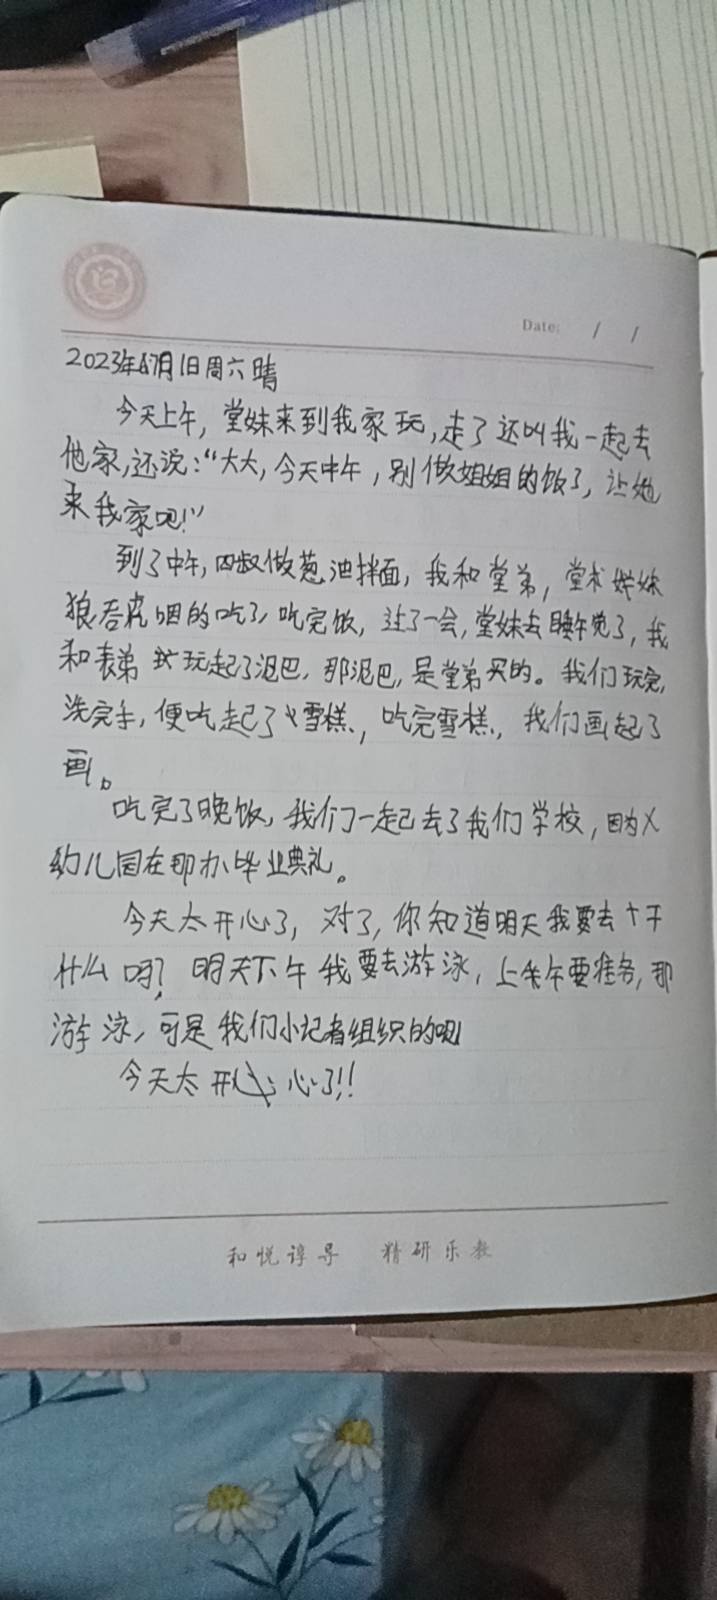 Date: / /
2023年7月1日周六 晴
今天上午,堂妹来到我家玩,走了还叫我一起去
他家,还说:“大大,今天中午,别做姐姐的饭了,让她
来我家吧!”
到了中午,四叔做葱油拌面,我和堂弟,堂妹
狼吞虎咽的吃了,吃完饭,过了一会,堂妹去睡午觉了,我
和表弟玩起了泥巴,那泥巴,是堂弟买的。我们玩完,
洗完手,便吃起了雪糕,吃完雪糕,我们画起了
画。
吃完了晚饭,我们一起去了我们学校,因为
幼儿园在那办毕业典礼。
今天太开心了,对了,你知道明天我要去干
什么吗?明天下午我要去游泳,上午要准备,那
游泳,可是我们小记者组织的呢!
今天太开心了!!
和悦谆导 精研乐教